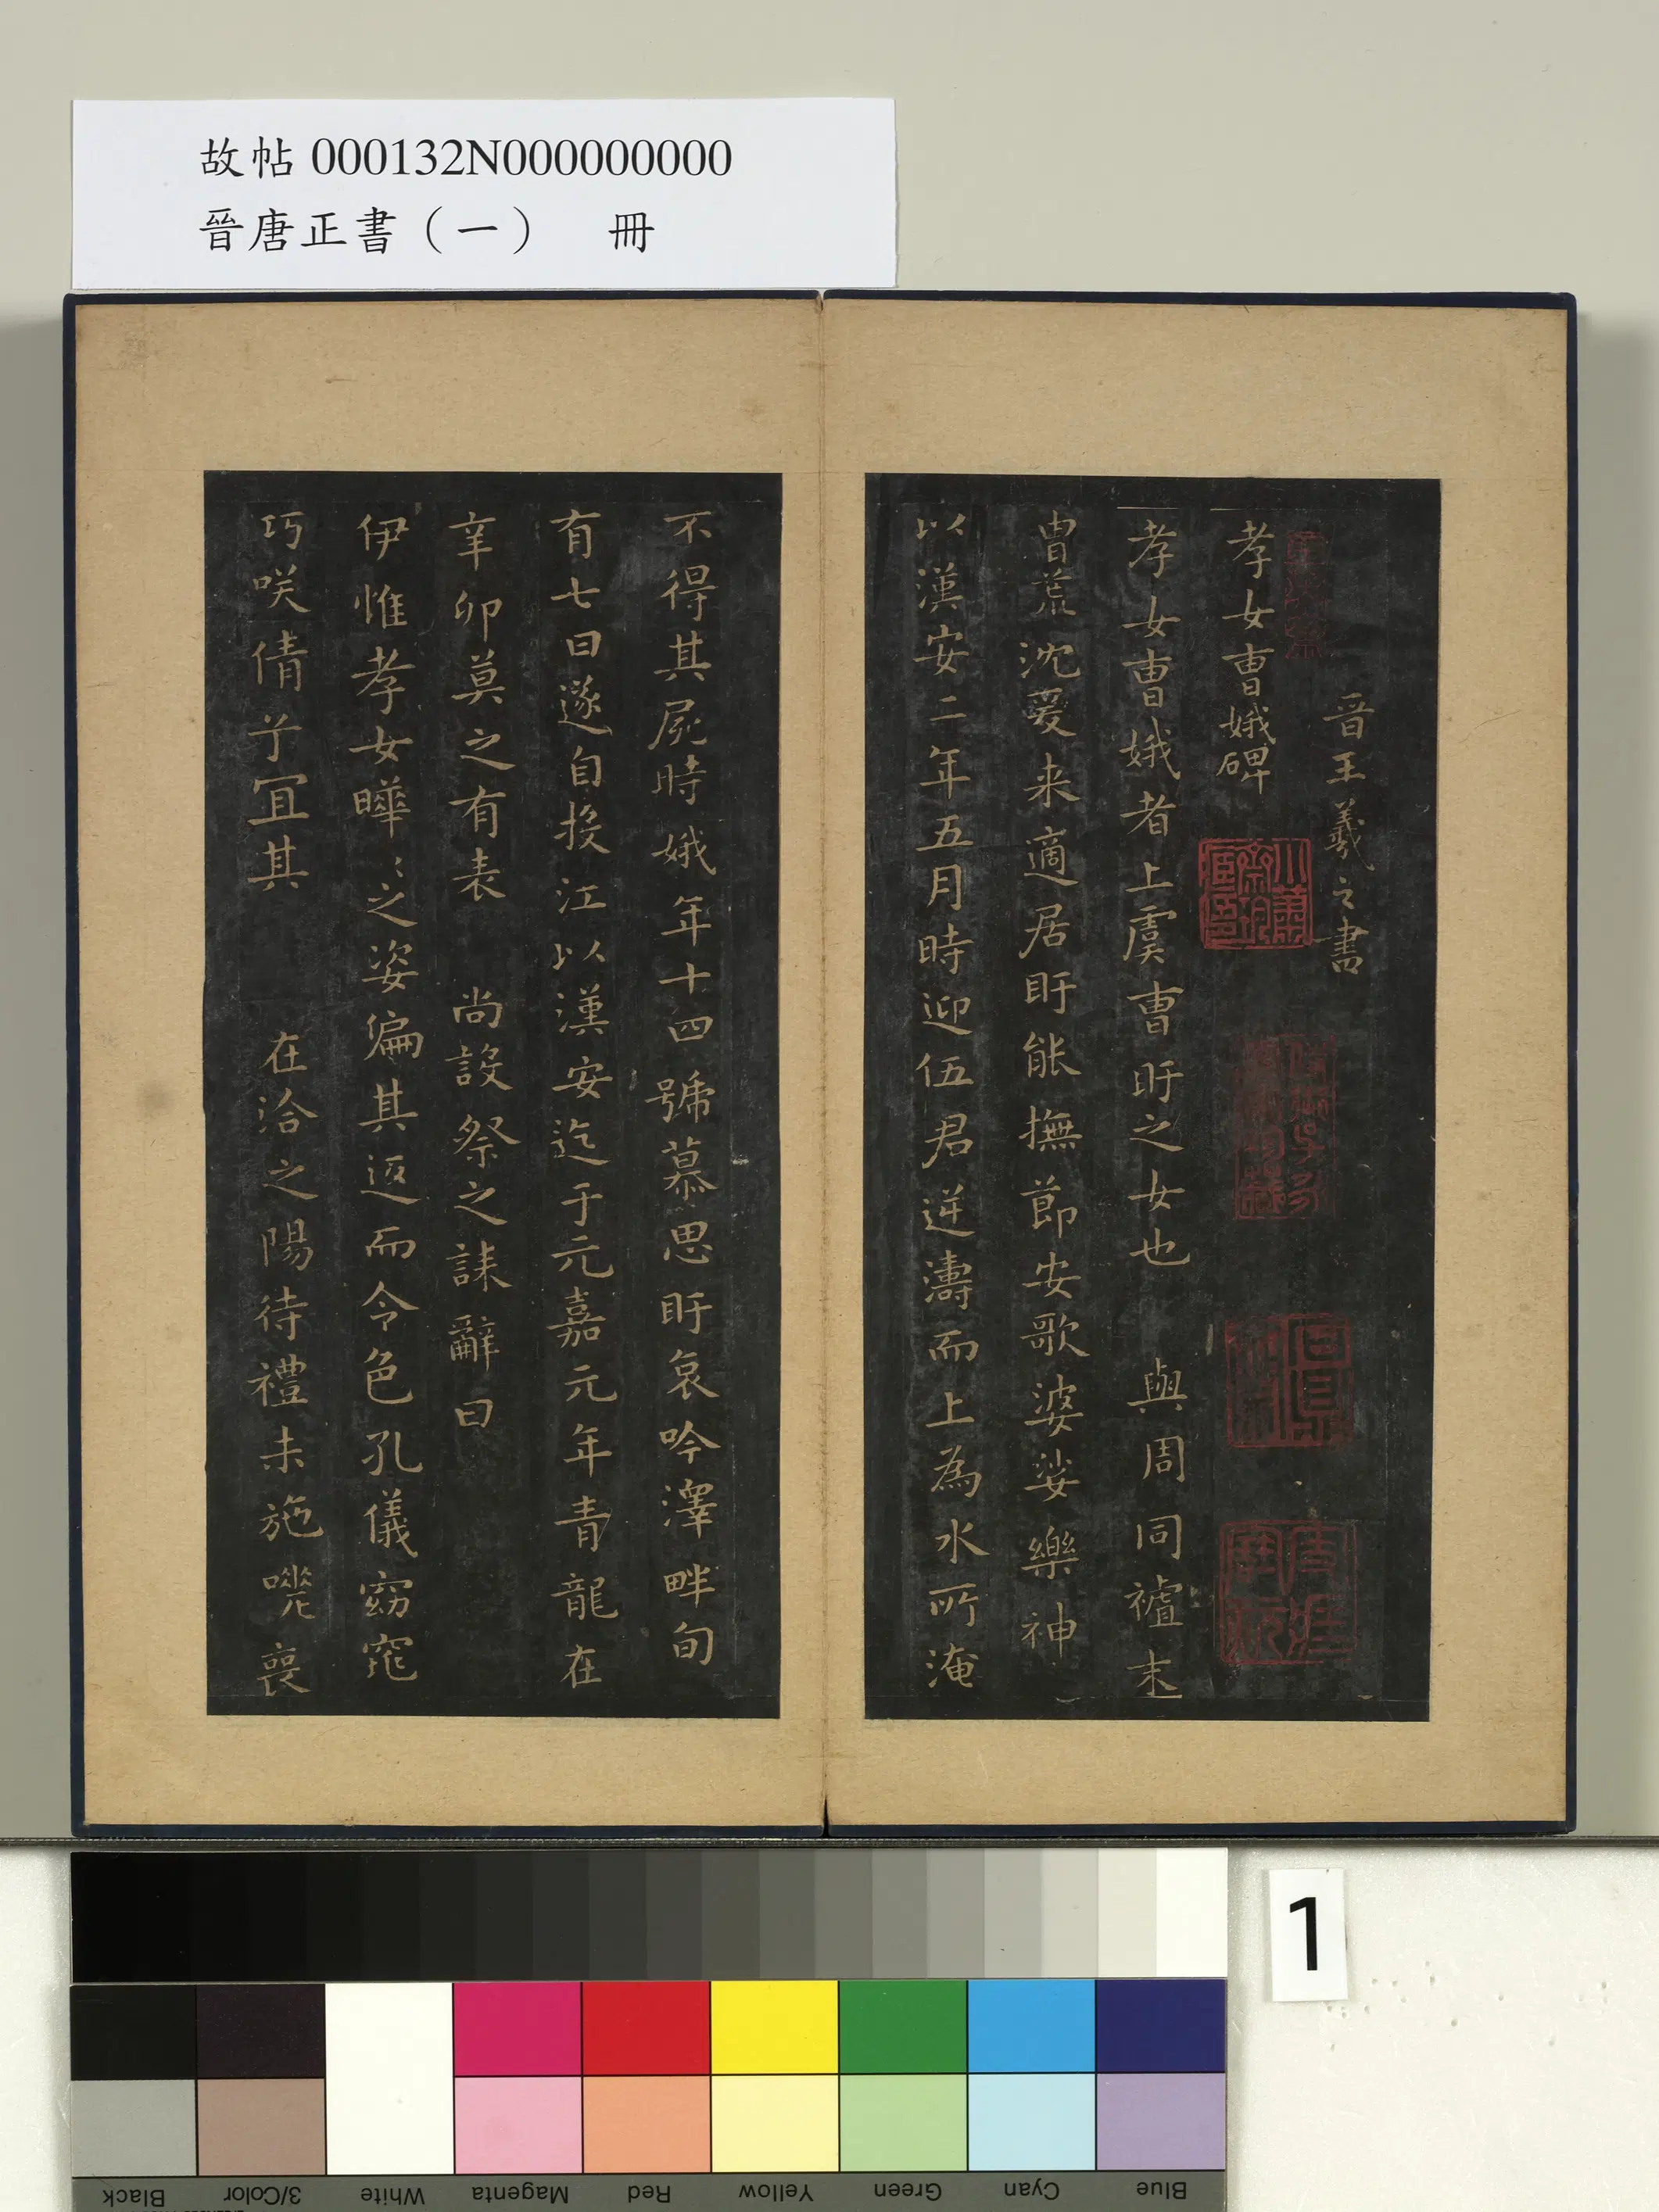 故帖 000132N000000000
晉唐正書（一）　冊
晉王羲之書
孝女曺娥碑
孝女曺娥者上虞曺盱之女也　與周同禠末
曺荒沈爰来適居盱能撫節安歌婆娑樂神
以漢安二年五月時迎伍君逆濤而上為水所淹
不得其屍時娥年十四號慕思盱哀吟澤畔旬
有七日遂自投江以漢安迄于元嘉元年青龍在
辛卯莫之有表　尚設祭之誄辭曰
伊惟孝女曄〻之姿偏其返而令色孔儀窈窕
巧咲倩兮冝其　在洽之陽待禮未施嗟喪
1
Black
3/Color
White
Magenta
Red
Yellow
Green
Cyan
Blue